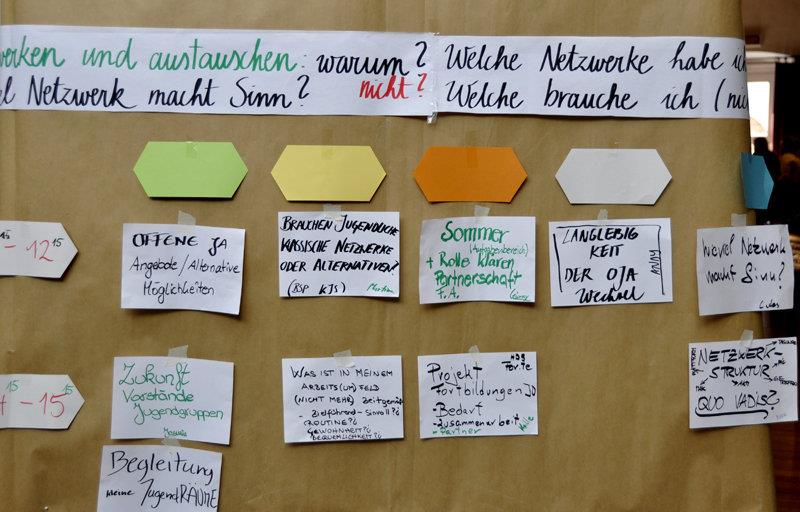 erken und austauschen: warum? Welche Netzwerke habe ich
el Netzwerk macht Sinn? nicht? Welche brauche ich (nic
- 12 15
OFFENE JA
Angebote / Alternative
Möglichkeiten
BRAUCHEN JUGENDLICHE
KLASSISCHE NETZWERKE
ODER ALTERNATIVEN?
(BSP KJS) Martin
Sommer
(Aufgabenbereich)
+ Rolle klären
Partnerschaft
F.A.
LANGLEBIG
KEIT
DER OJA
Wechsel
wieviel Netzwerk
macht Sinn?
Lukas
15 - 15 15
Zukunft
Vorstände
Jugendgruppen
WAS IST IN MEINEM
ARBEITS(UM)FELD
(NICHT MEHR) zeitgemäß
- Zielführend - Sinnvoll?
ROUTINE?
GEWOHNHEIT?
BEQUEMLICHKEIT?
HDS
Projekt
Fortbildungen JD
- Bedarf
- Zusammenarbeit
- Partner
NETZWERK-
STRUKTUR
QUO VADIS?
Begleitung
kleine JugendRÄUME